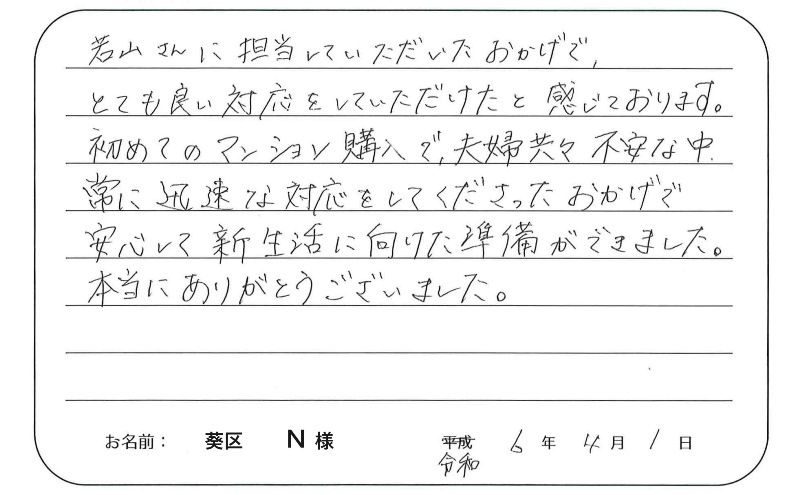 若山さんに担当していただいたおかげで、
とても良い対応をしていただけたと感じております。
初めてのマンション購入で、夫婦共々不安な中
常に迅速な対応をしてくださったおかげで
安心して新生活に向けた準備ができました。
本当にありがとうございました。
お名前： 葵区 N 様 平成 6 年 4 月 1 日
令和